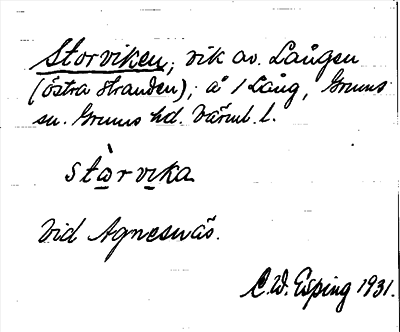 Storviken, vik av Lången
(östra stranden); å 1 Lång, Grums
sn. Grums hd. Värml. l.
stòrvika
Vid Agnesnäs.
C.W. Esping 1931.